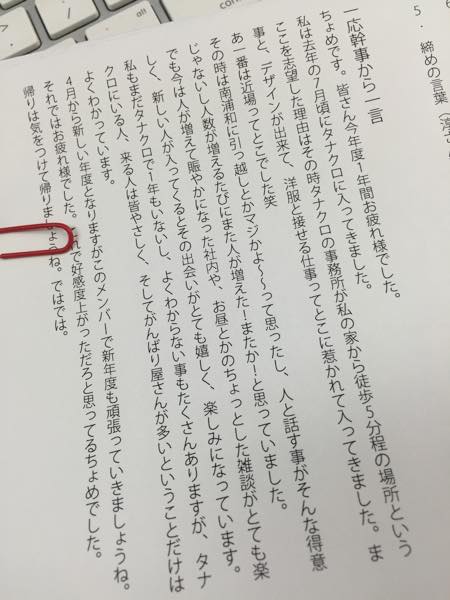 5. 締めの言葉
一応幹事から一言
ちょめです。皆さん今年度1年間お疲れ様でした。
私は去年の7月頃にタナクロに入ってきました。
ここを志望した理由はその時タナクロの事務所が私の家から徒歩5分程の場所という
事と、デザインが出来て、洋服と接せる仕事ってとこに惹かれて入ってきました。ま
あ一番は近場ってとこでした笑
その時は南浦和に引っ越しとかマジかよ〜〜って思ったし、人と話す事がそんな得意
じゃないし人数が増えるたびにまた人が増えた!またか!と思っていました。
でも今は人が増えて賑やかになった社内や、お昼とかのちょっとした雑談がとても楽
しく、新しい人が入ってくるとその出会いがとても嬉しく、楽しみになっています。
私もまだタナクロで1年もいないし、よくわからない事もたくさんありますが、タナ
クロにいる人、来る人は皆やさしく、そしてがんばり屋さんが多いということだけは
よくわかっています。
4月から新しい年度となりますがこのメンバーで新年度も頑張っていきましょうね。
それではお疲れ様でした。これで好感度上がっただろと思ってるちょめでした。
帰りは気をつけて帰りましょうね。ではでは。